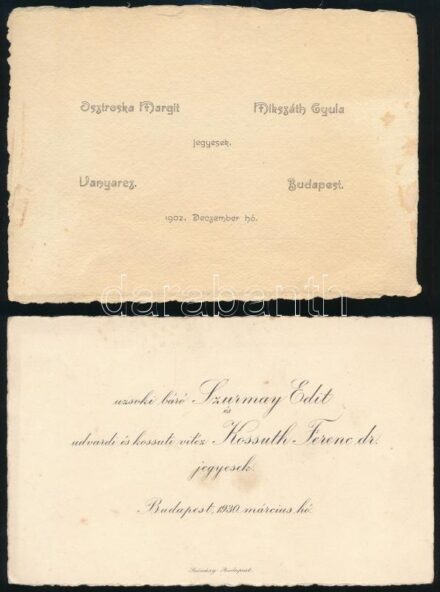 Osztroska Margit Mikszáth Gyula
jegyesek.
Vanyarcz. Budapest.
1902. Deczember hó.
darabanth
uzsoki báró Szurmay Edit
és
udvardi és kossuti vitéz Kossuth Ferenc dr.
jegyesek.
Budapest, 1930. március hó.
Budapest.